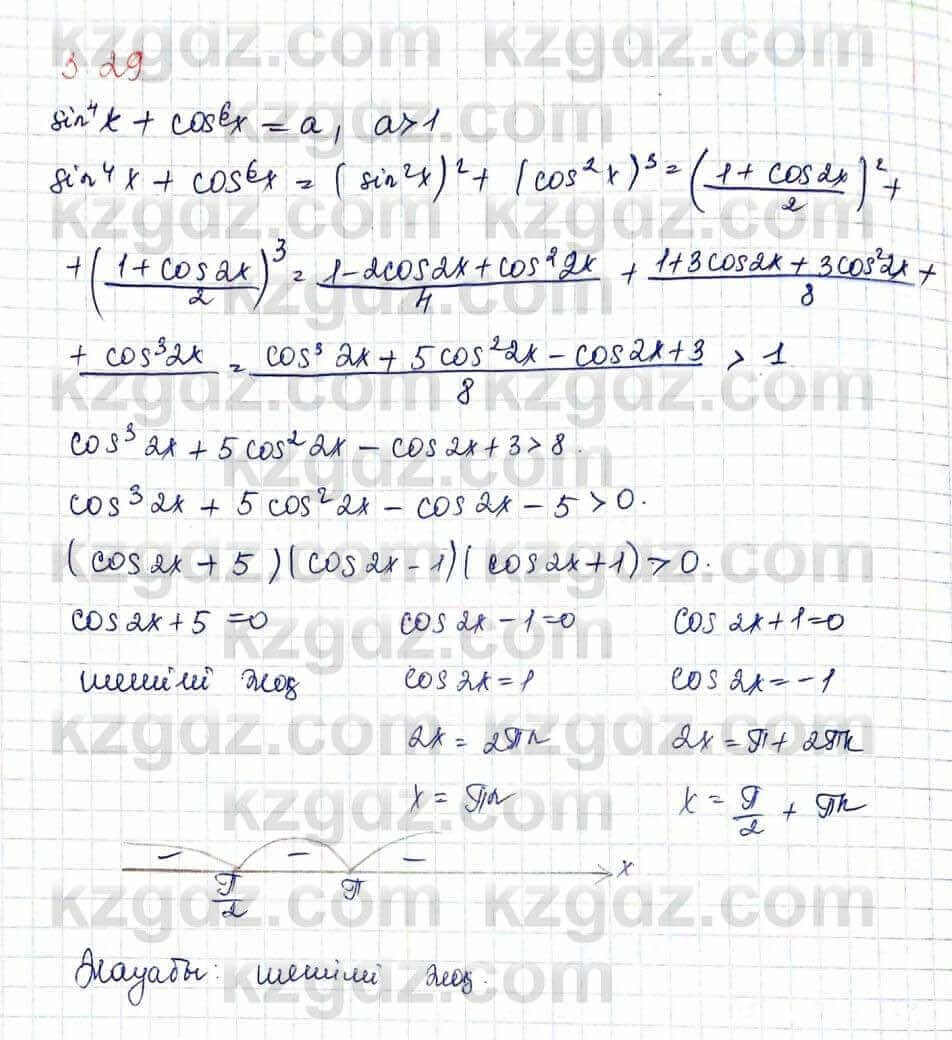 3.29
sin⁴x + cos⁶x = a, a>1
sin⁴x + cos⁶x = (sin²x)² + (cos²x)³ = ((1 + cos2x)/2)² +
+ ((1 + cos2x)/2)³ = (1 - 2cos2x + cos²2x)/4 + (1 + 3cos2x + 3cos²2x +)/8
+ cos³2x = (cos³2x + 5cos²2x - cos2x + 3)/8 > 1
cos³2x + 5cos²2x - cos2x + 3 > 8.
cos³2x + 5cos²2x - cos2x - 5 > 0.
(cos2x + 5)(cos2x - 1)(cos2x + 1) > 0.
cos2x + 5 = 0 cos2x - 1 = 0 cos2x + 1 = 0
шешімі жоқ cos2x = 1 cos2x = -1
2x = 2πn 2x = π + 2πk
x = πn x = π/2 + πk
- - - x
π/2 π
Жауабы: шешімі жоқ.
kzgdz.com